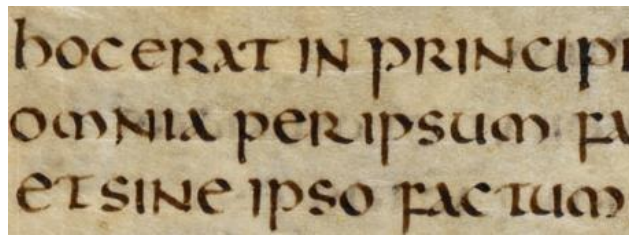 hocerat in principi
omnia per ipsum fa
et sine ipso factum